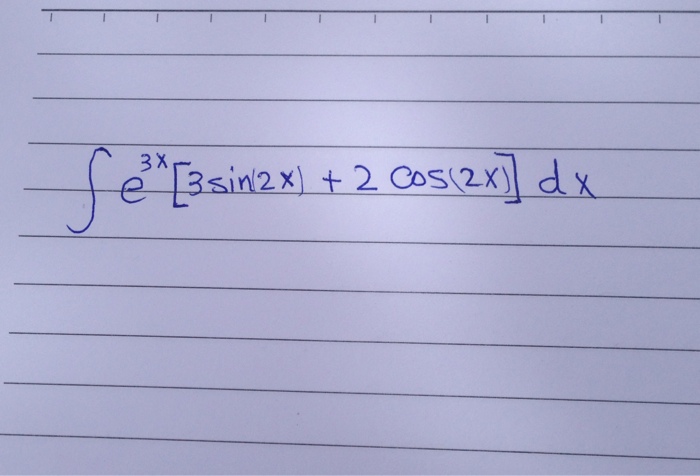 ∫ e^{3x} [3 sin(2x) + 2 cos(2x)] dx